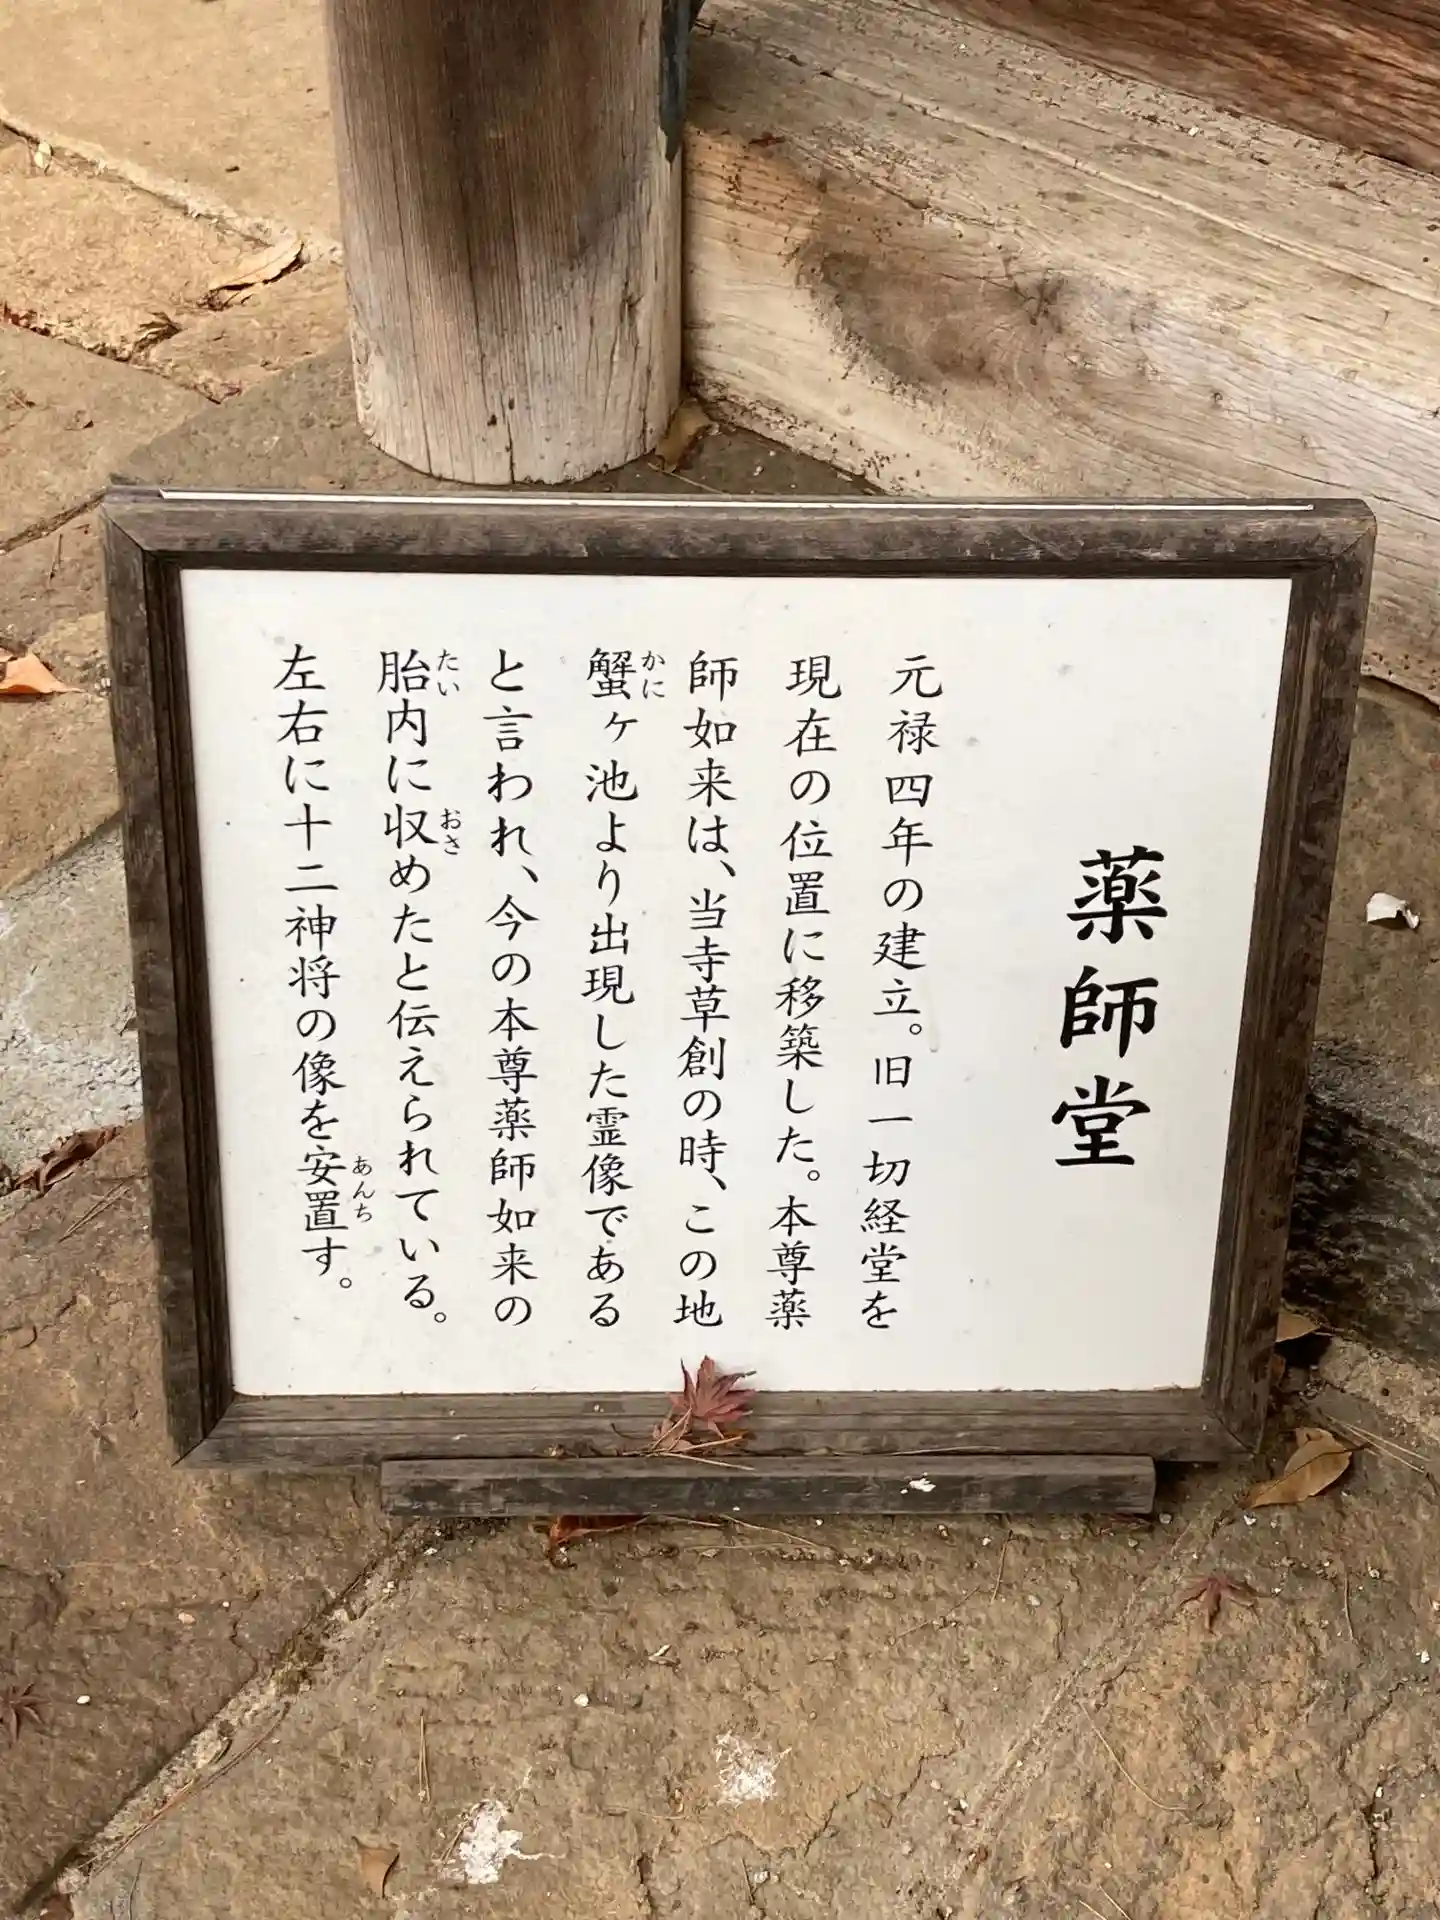 薬師堂
元禄四年の建立。旧一切経堂を
現在の位置に移築した。本尊薬
師如来は、当寺草創の時、この地
蟹ヶ池より出現した霊像である
かに
と言われ、今の本尊薬師如来の
胎内に収めたと伝えられている。
たい
おさ
左右に十二神将の像を安置す。
あんち